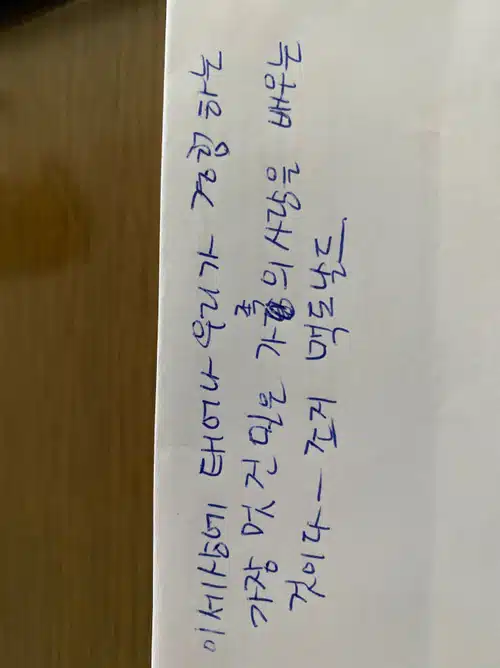 이 세상에 태어나 우리가 경험하는
가장 멋진 일은 가족의 사랑을 배우는
것이다 - 조지 맥도날드